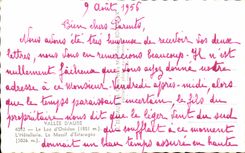 9 Août 1956
Bien chers Parents,
Nous avons été très heureuses de recevoir vos deux
lettres, nous vous en remercions beaucoup. Il n'est
nullement fâcheux que vous ayez donné votre
adresse à ce Monsieur. Vendredi après-midi, alors
que le temps paraissait incertain, le fils du
propriétaire nous dit que le léger vent du sud
qui soufflait à ce moment
donnait un beau temps assuré en haute
VALLÉE D'AURE
Le Lac d'Orédon
L'Hôtellerie. Le Massif d'Estaragne